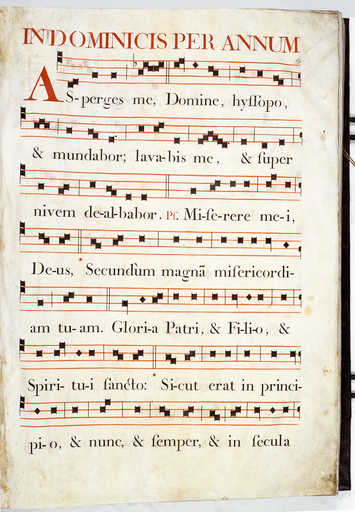 IN DOMINICIS PER ANNUM
AS-perges me, Domine, hyſſopo,
& mundabor; lava-bis me, & ſuper
nivem de-al-babor. Pſ. Mi-ſe-rere me-i,
De-us, Secundùm magnã miſericordi-
am tu-am. Glori-a Patri, & Fi-li-o, &
Spiri-tu-i ſancto: Si-cut erat in princi-
pi-o, & nunc, & ſemper, & in ſecula